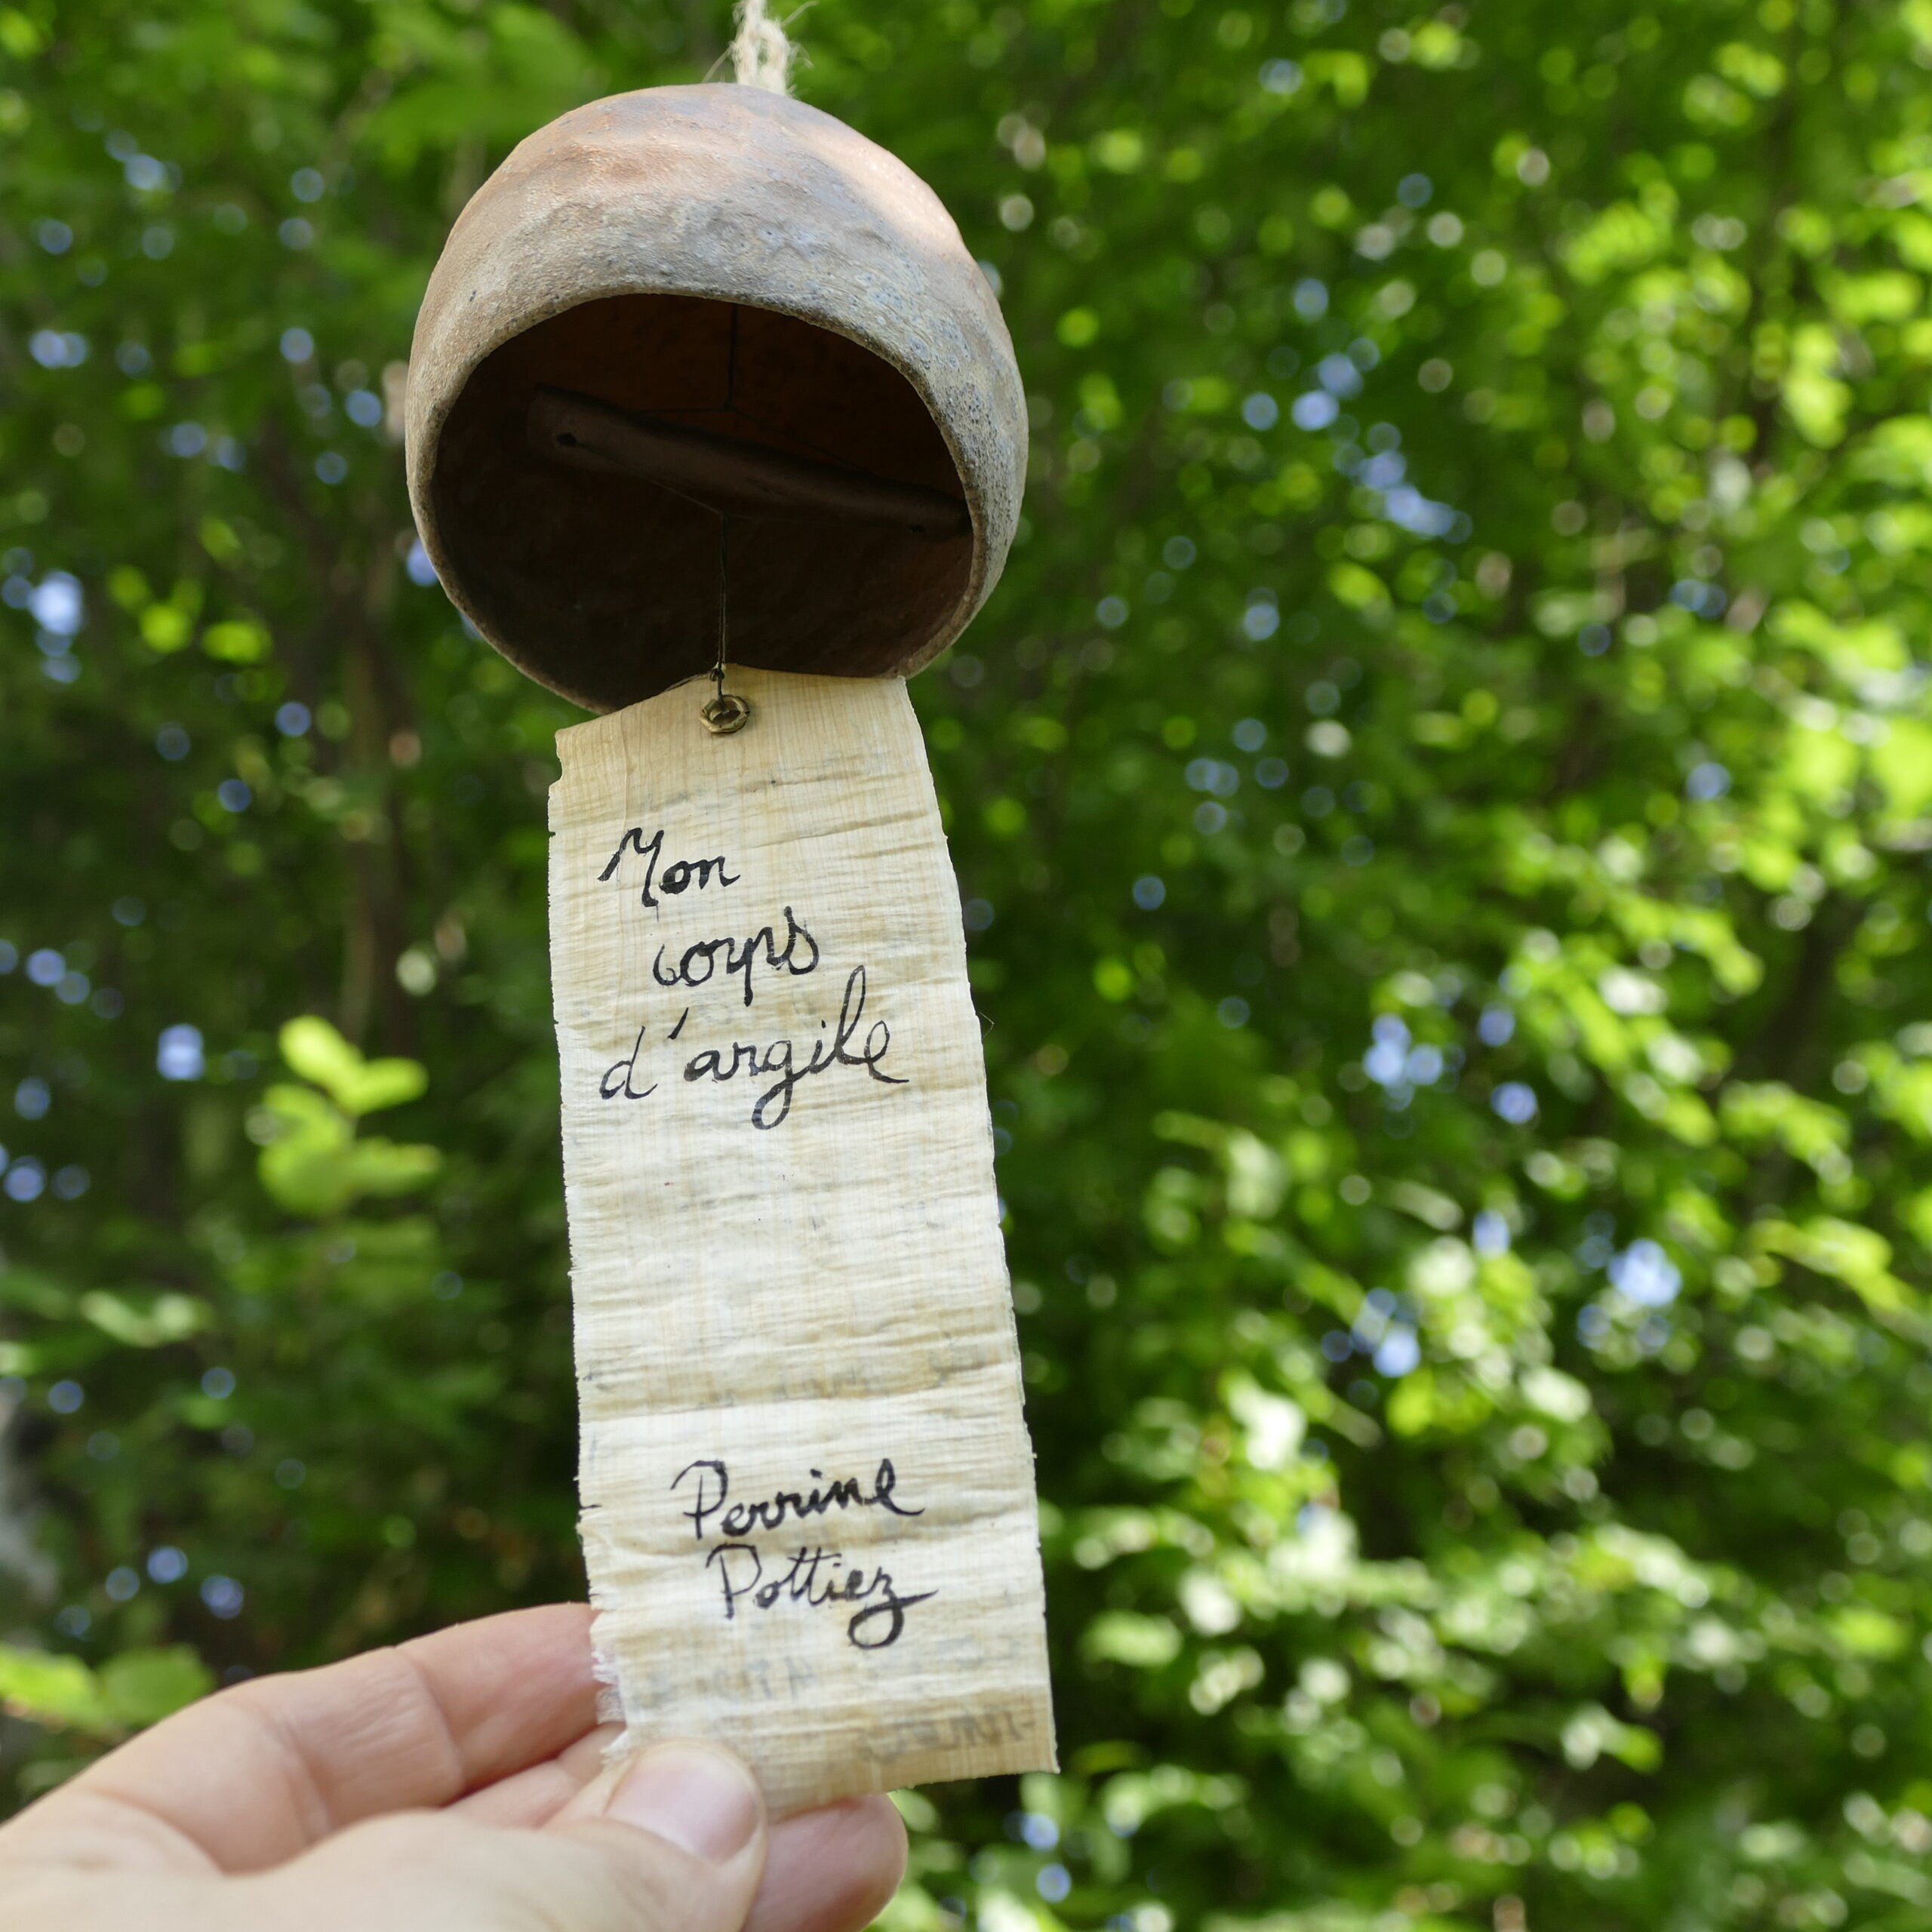 Mon
corps
d'argile
Perrine
Pottiez